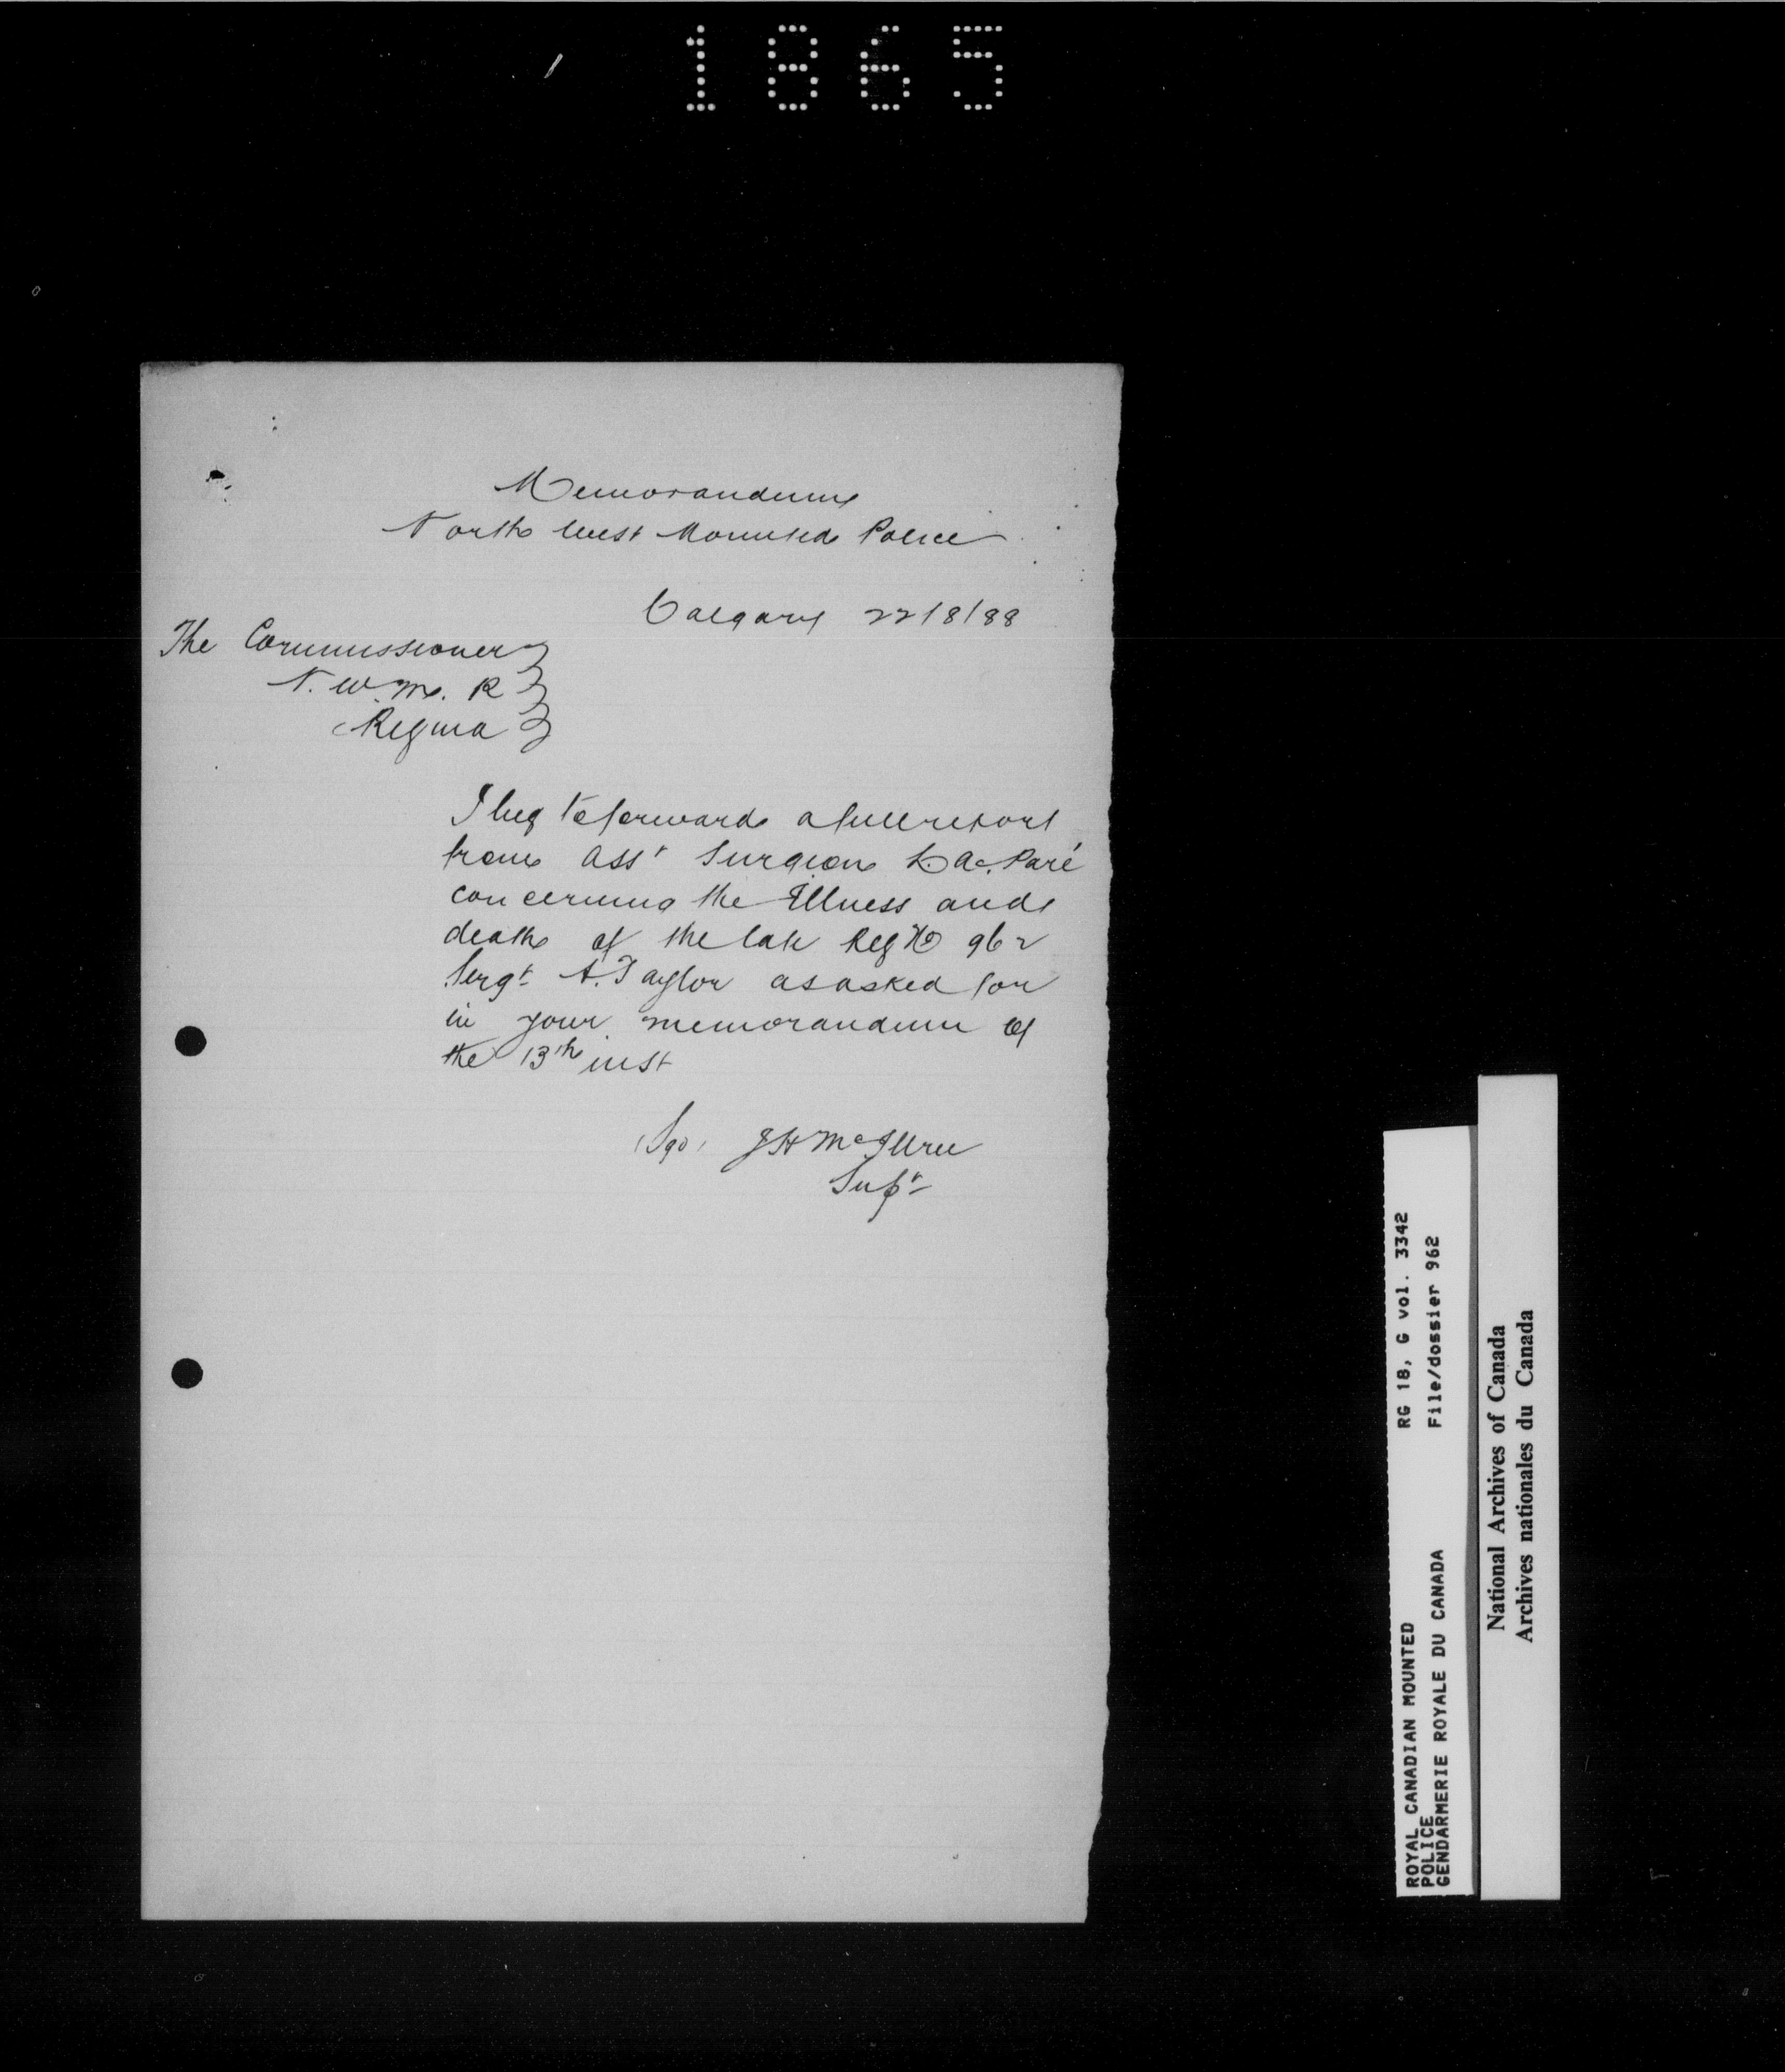 1865
Memorandum
North West Mounted Police
Calgary 22/8/88
The Commissioner
N. W. M. P.
Regina
I beg to forward a full report
from Asst Surgeon L. A. Paré
concerning the Illness and
death of the late Reg No 962
Sergt A. Taylor as asked for
in your memorandum of
the 13th inst
(Sgd) J H McIllree
Supt
ROYAL CANADIAN MOUNTED RG 18, G vol. 3342
POLICE File/dossier 962
GENDARMERIE ROYALE DU CANADA
National Archives of Canada
Archives nationales du Canada